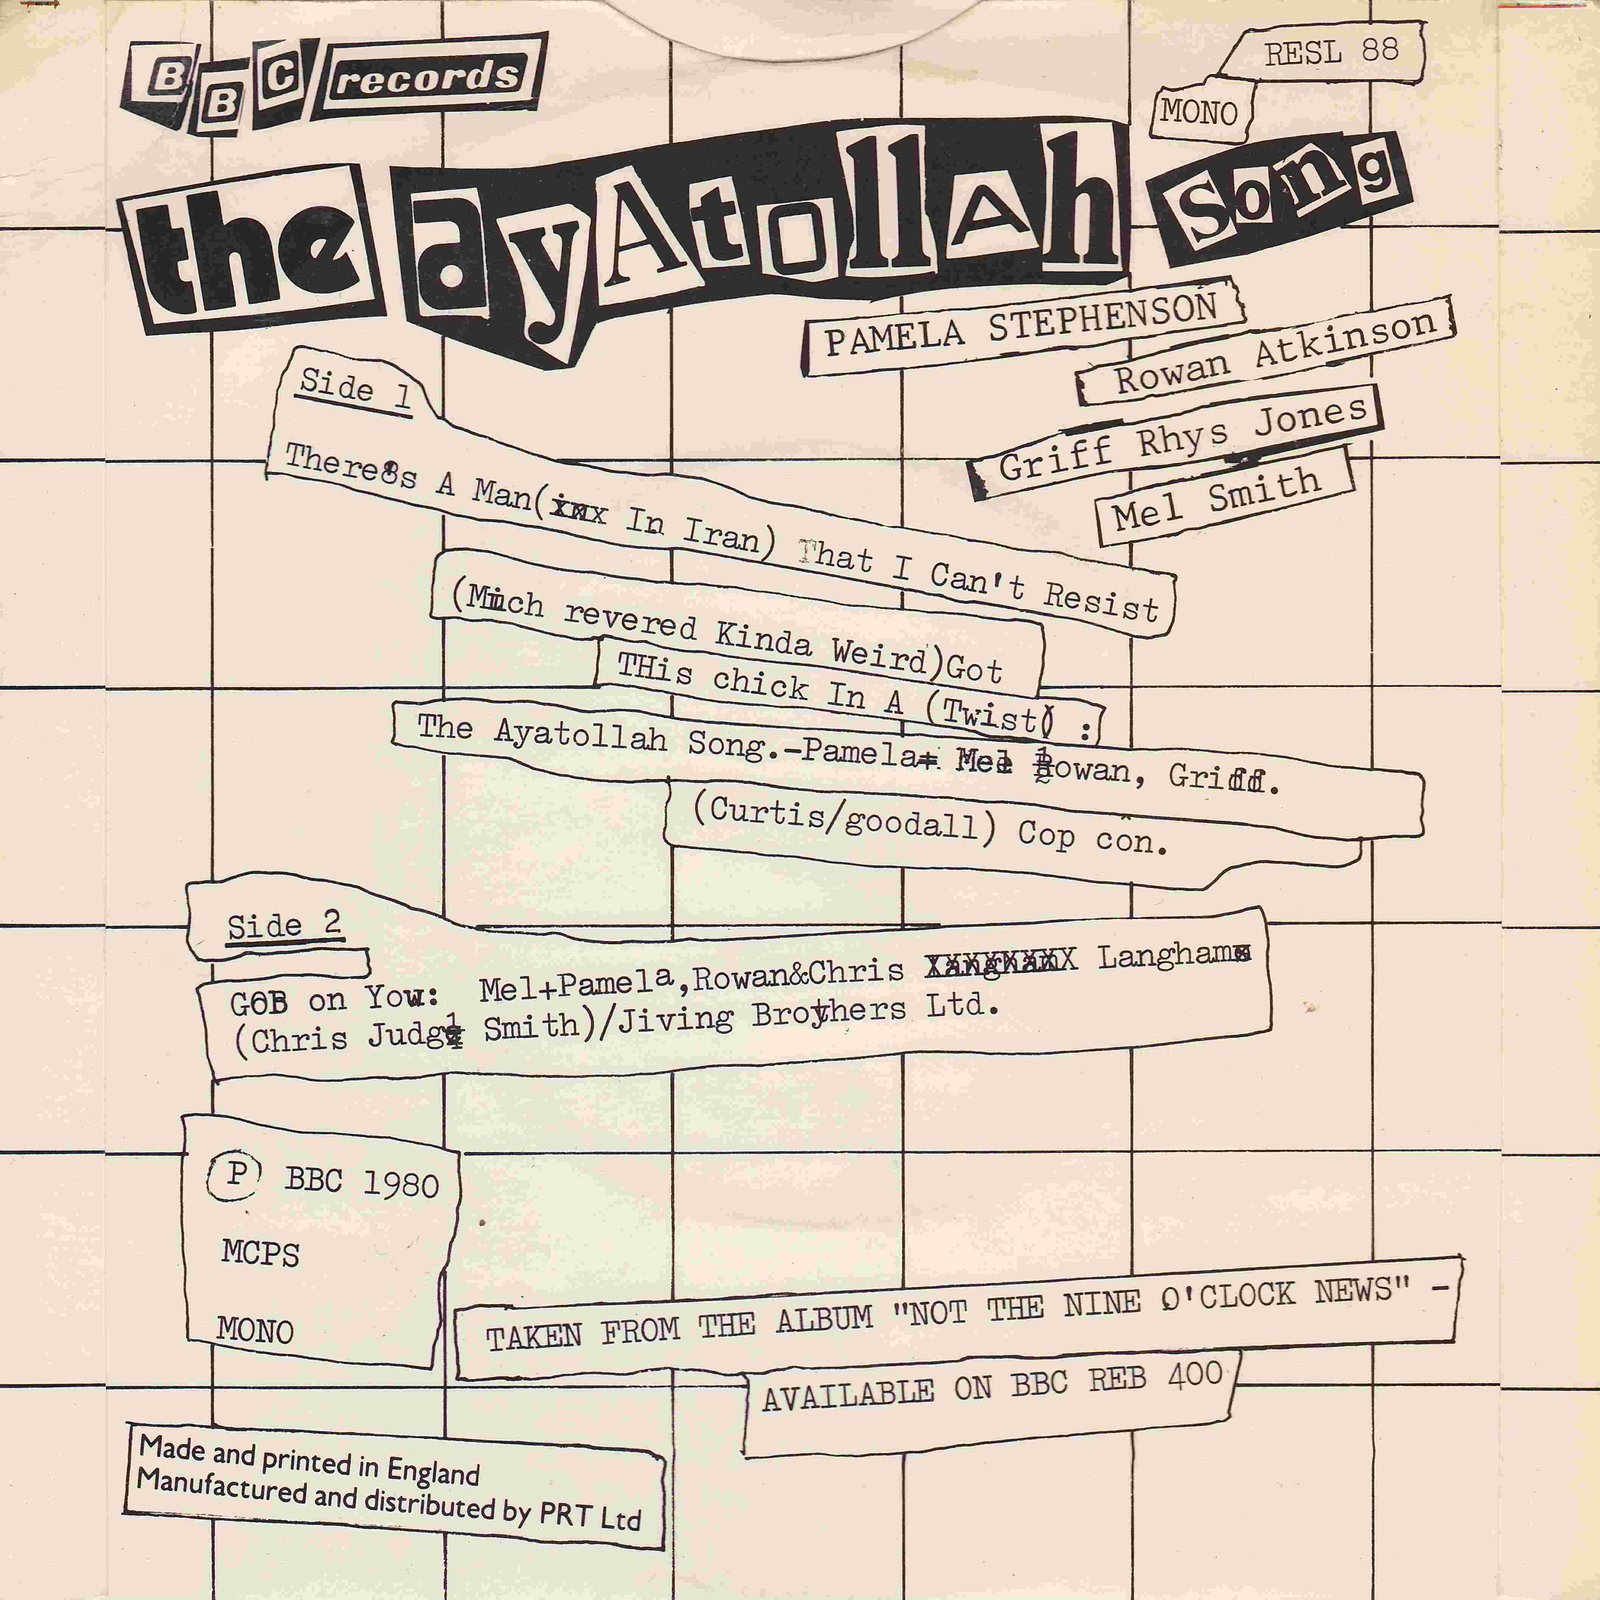 BBC records
RESL 88
MONO
the ayAtollAh song
PAMELA STEPHENSON
Rowan Atkinson
Griff Rhys Jones
Mel Smith
Side 1
There's A Man(inx In Iran) That I Can't Resist
(Much revered Kinda Weird)Got
THis chick In A (Twist) :
The Ayatollah Song.-Pamela+ Mel Rowan, Griff.
(Curtis/goodall) Cop con.
Side 2
GOB on You: Mel+Pamela,Rowan&Chris Langham
(Chris Judge Smith)/Jiving Brothers Ltd.
Ⓟ BBC 1980
MCPS
MONO
TAKEN FROM THE ALBUM "NOT THE NINE O'CLOCK NEWS" -
AVAILABLE ON BBC REB 400
Made and printed in England
Manufactured and distributed by PRT Ltd